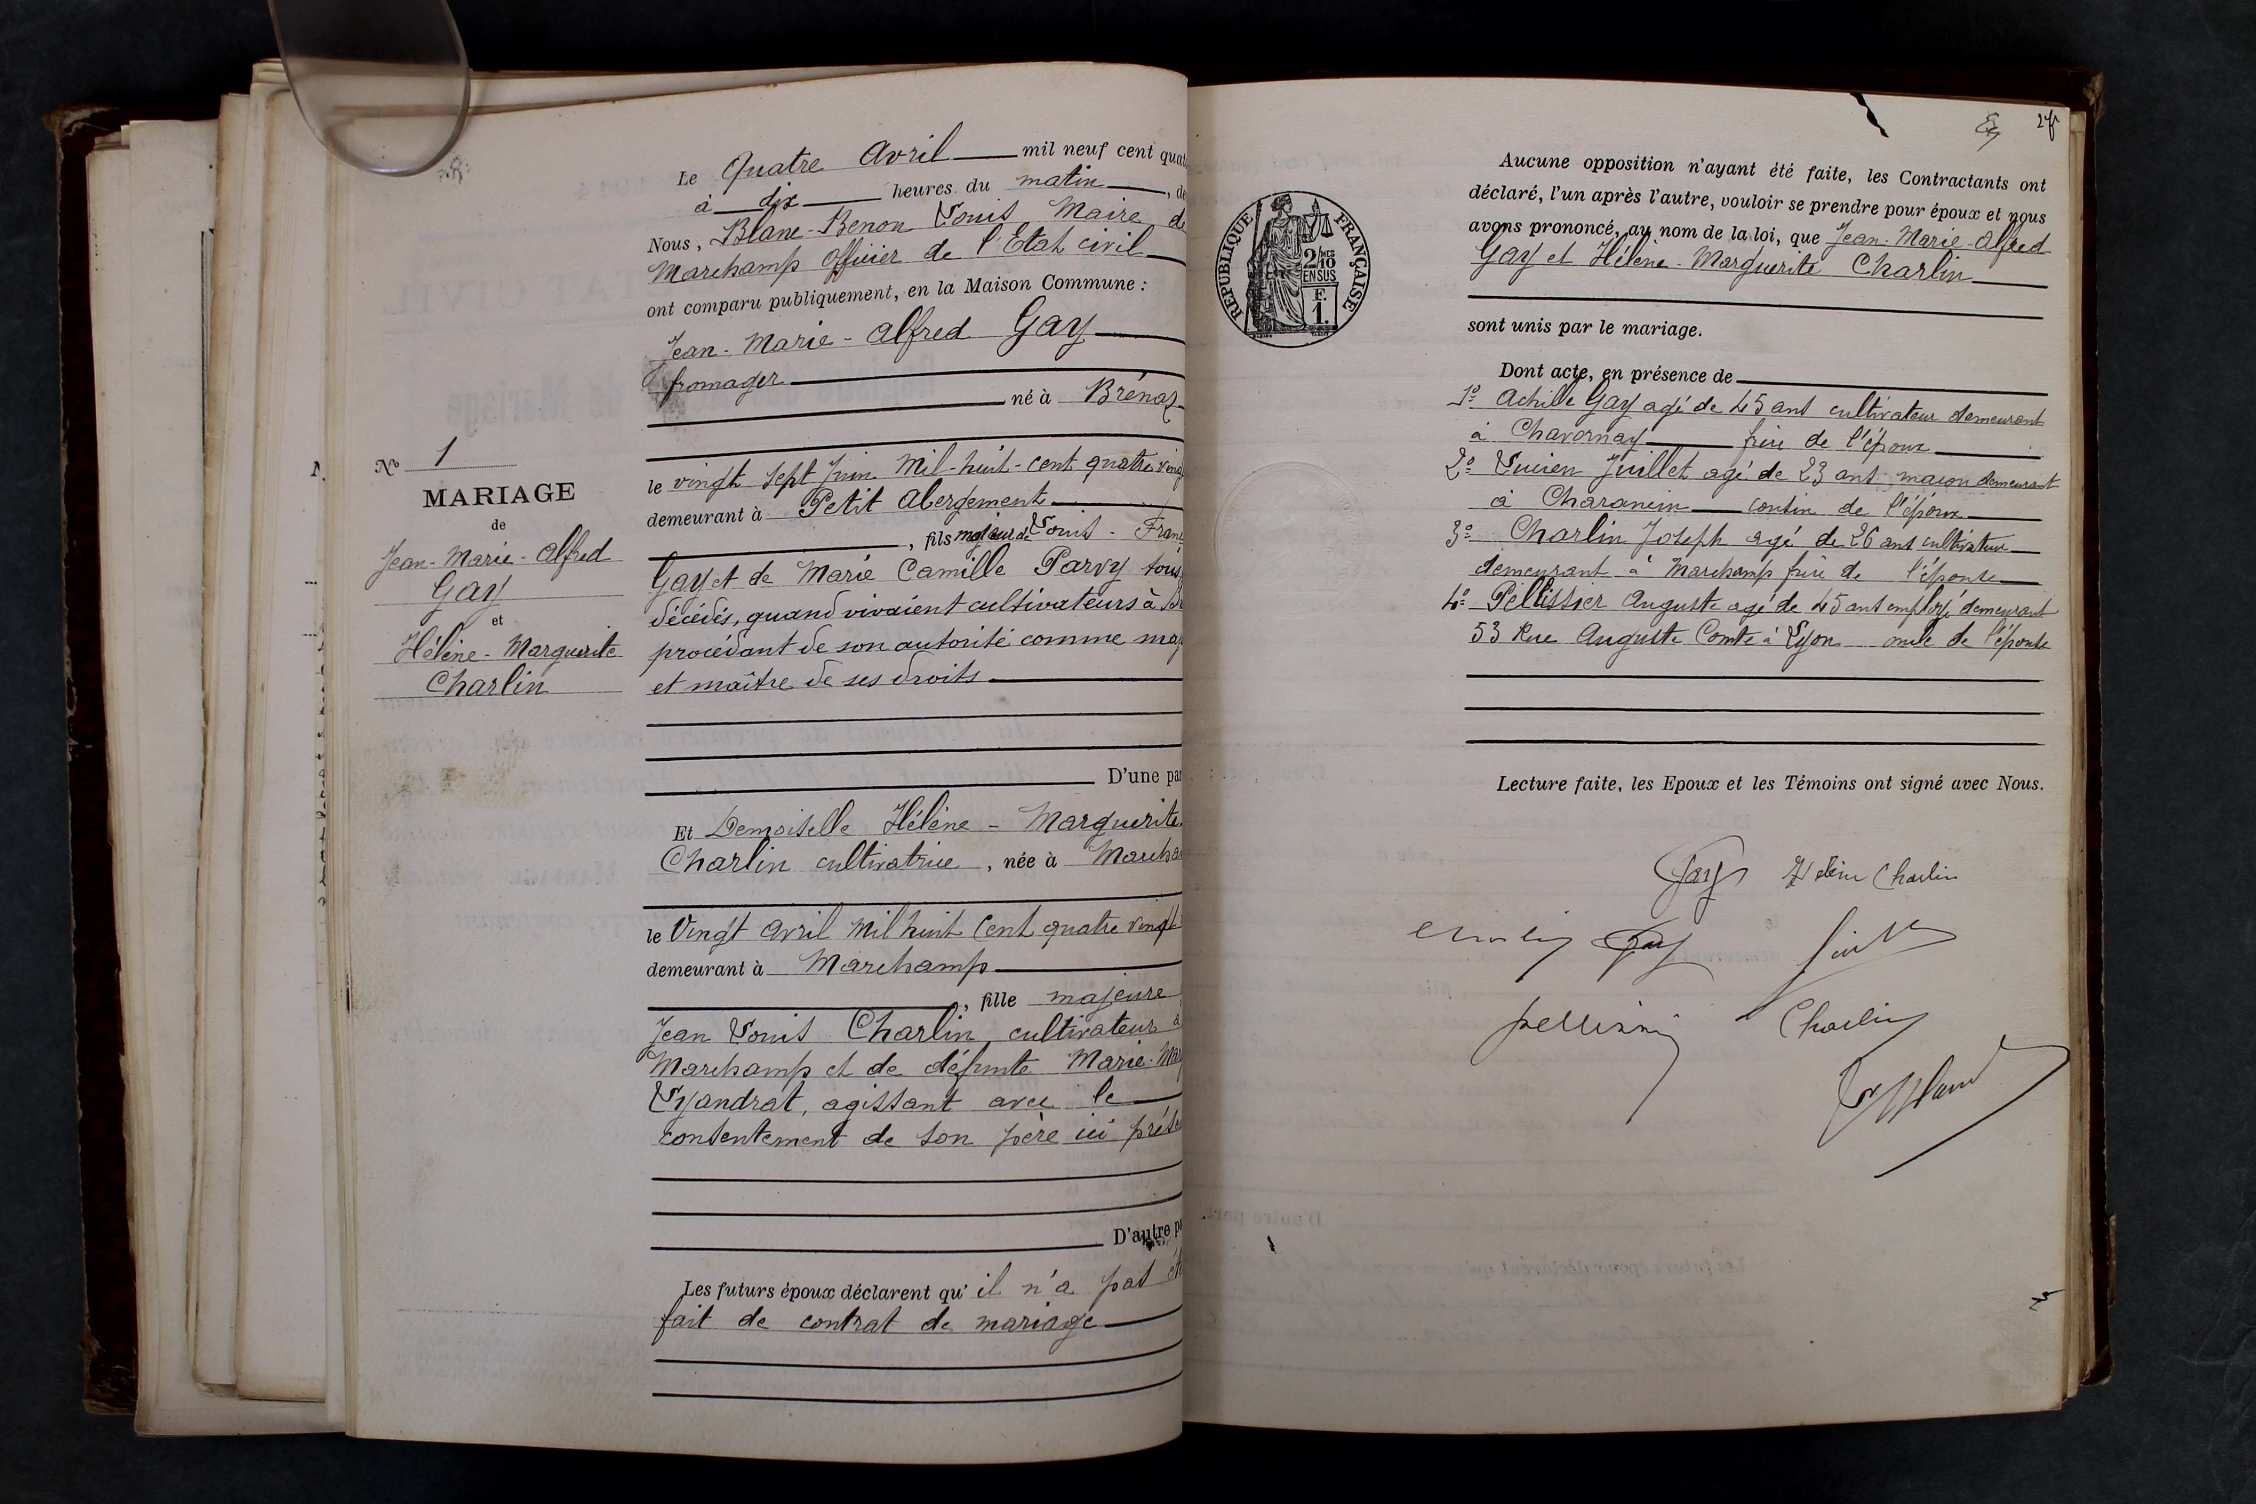 Le Quatre Avril mil neuf cent quat
à dix heures du matin, de
Nous, Blanc-Benon Louis Maire de
Marchamp Officier de l'Etat civil
ont comparu publiquement, en la Maison Commune :
Jean-Marie-Alfred Gay
fromager
né à Brénaz
le vingt sept Juin Mil-huit-cent quatre ving
demeurant à Petit Abergement
, fils majeur de Louis-Franç
Gay et de Marie Camille Parvy tous
décédés, quand vivaient cultivateurs à Br
procédant de son autorité comme maj
et maître de ses droits
D'une par
Nº 1
MARIAGE
de
Jean-Marie-Alfred
Gay
et
Hélène-Marguerite
Charlin
Et Demoiselle Hélène-Marguerite
Charlin cultivatrice, née à Marcha
le Vingt Avril Mil huit Cent quatre vingt
demeurant à Marchamp
, fille majeure
Jean Louis Charlin cultivateur à
Marchamp et de défunte Marie-Mar
Lyandrat, agissant avec le
consentement de son père ici prése
D'autre pa
Les futurs époux déclarent qu'il n'a pas ét
fait de contrat de mariage
Aucune opposition n'ayant été faite, les Contractants ont
déclaré, l'un après l'autre, vouloir se prendre pour époux et nous
avons prononcé, au nom de la loi, que Jean-Marie-Alfred
Gay et Hélène-Marguerite Charlin
sont unis par le mariage.
Dont acte, en présence de
1º Achille Gay agé de 45 ans cultivateur demeurant
à Chavornay frère de l'époux
2º Lucien Juillet agé de 23 ans maçon demeurant
à Charancin cousin de l'époux
3º Charlin Joseph agé de 26 ans cultivateur
demeurant à Marchamp frère de l'épouse
4º Pellissier Auguste agé de 45 ans employé demeurant
53 Rue Auguste Comte à Lyon oncle de l'épouse
Lecture faite, les Epoux et les Témoins ont signé avec Nous.
Gay Hélène Charlin
Charlin Gay Juillet
Pellissier Charlin
Ls Blanc
RÉPUBLIQUE FRANÇAISE
2/10 MES
EN SUS
F.
1.